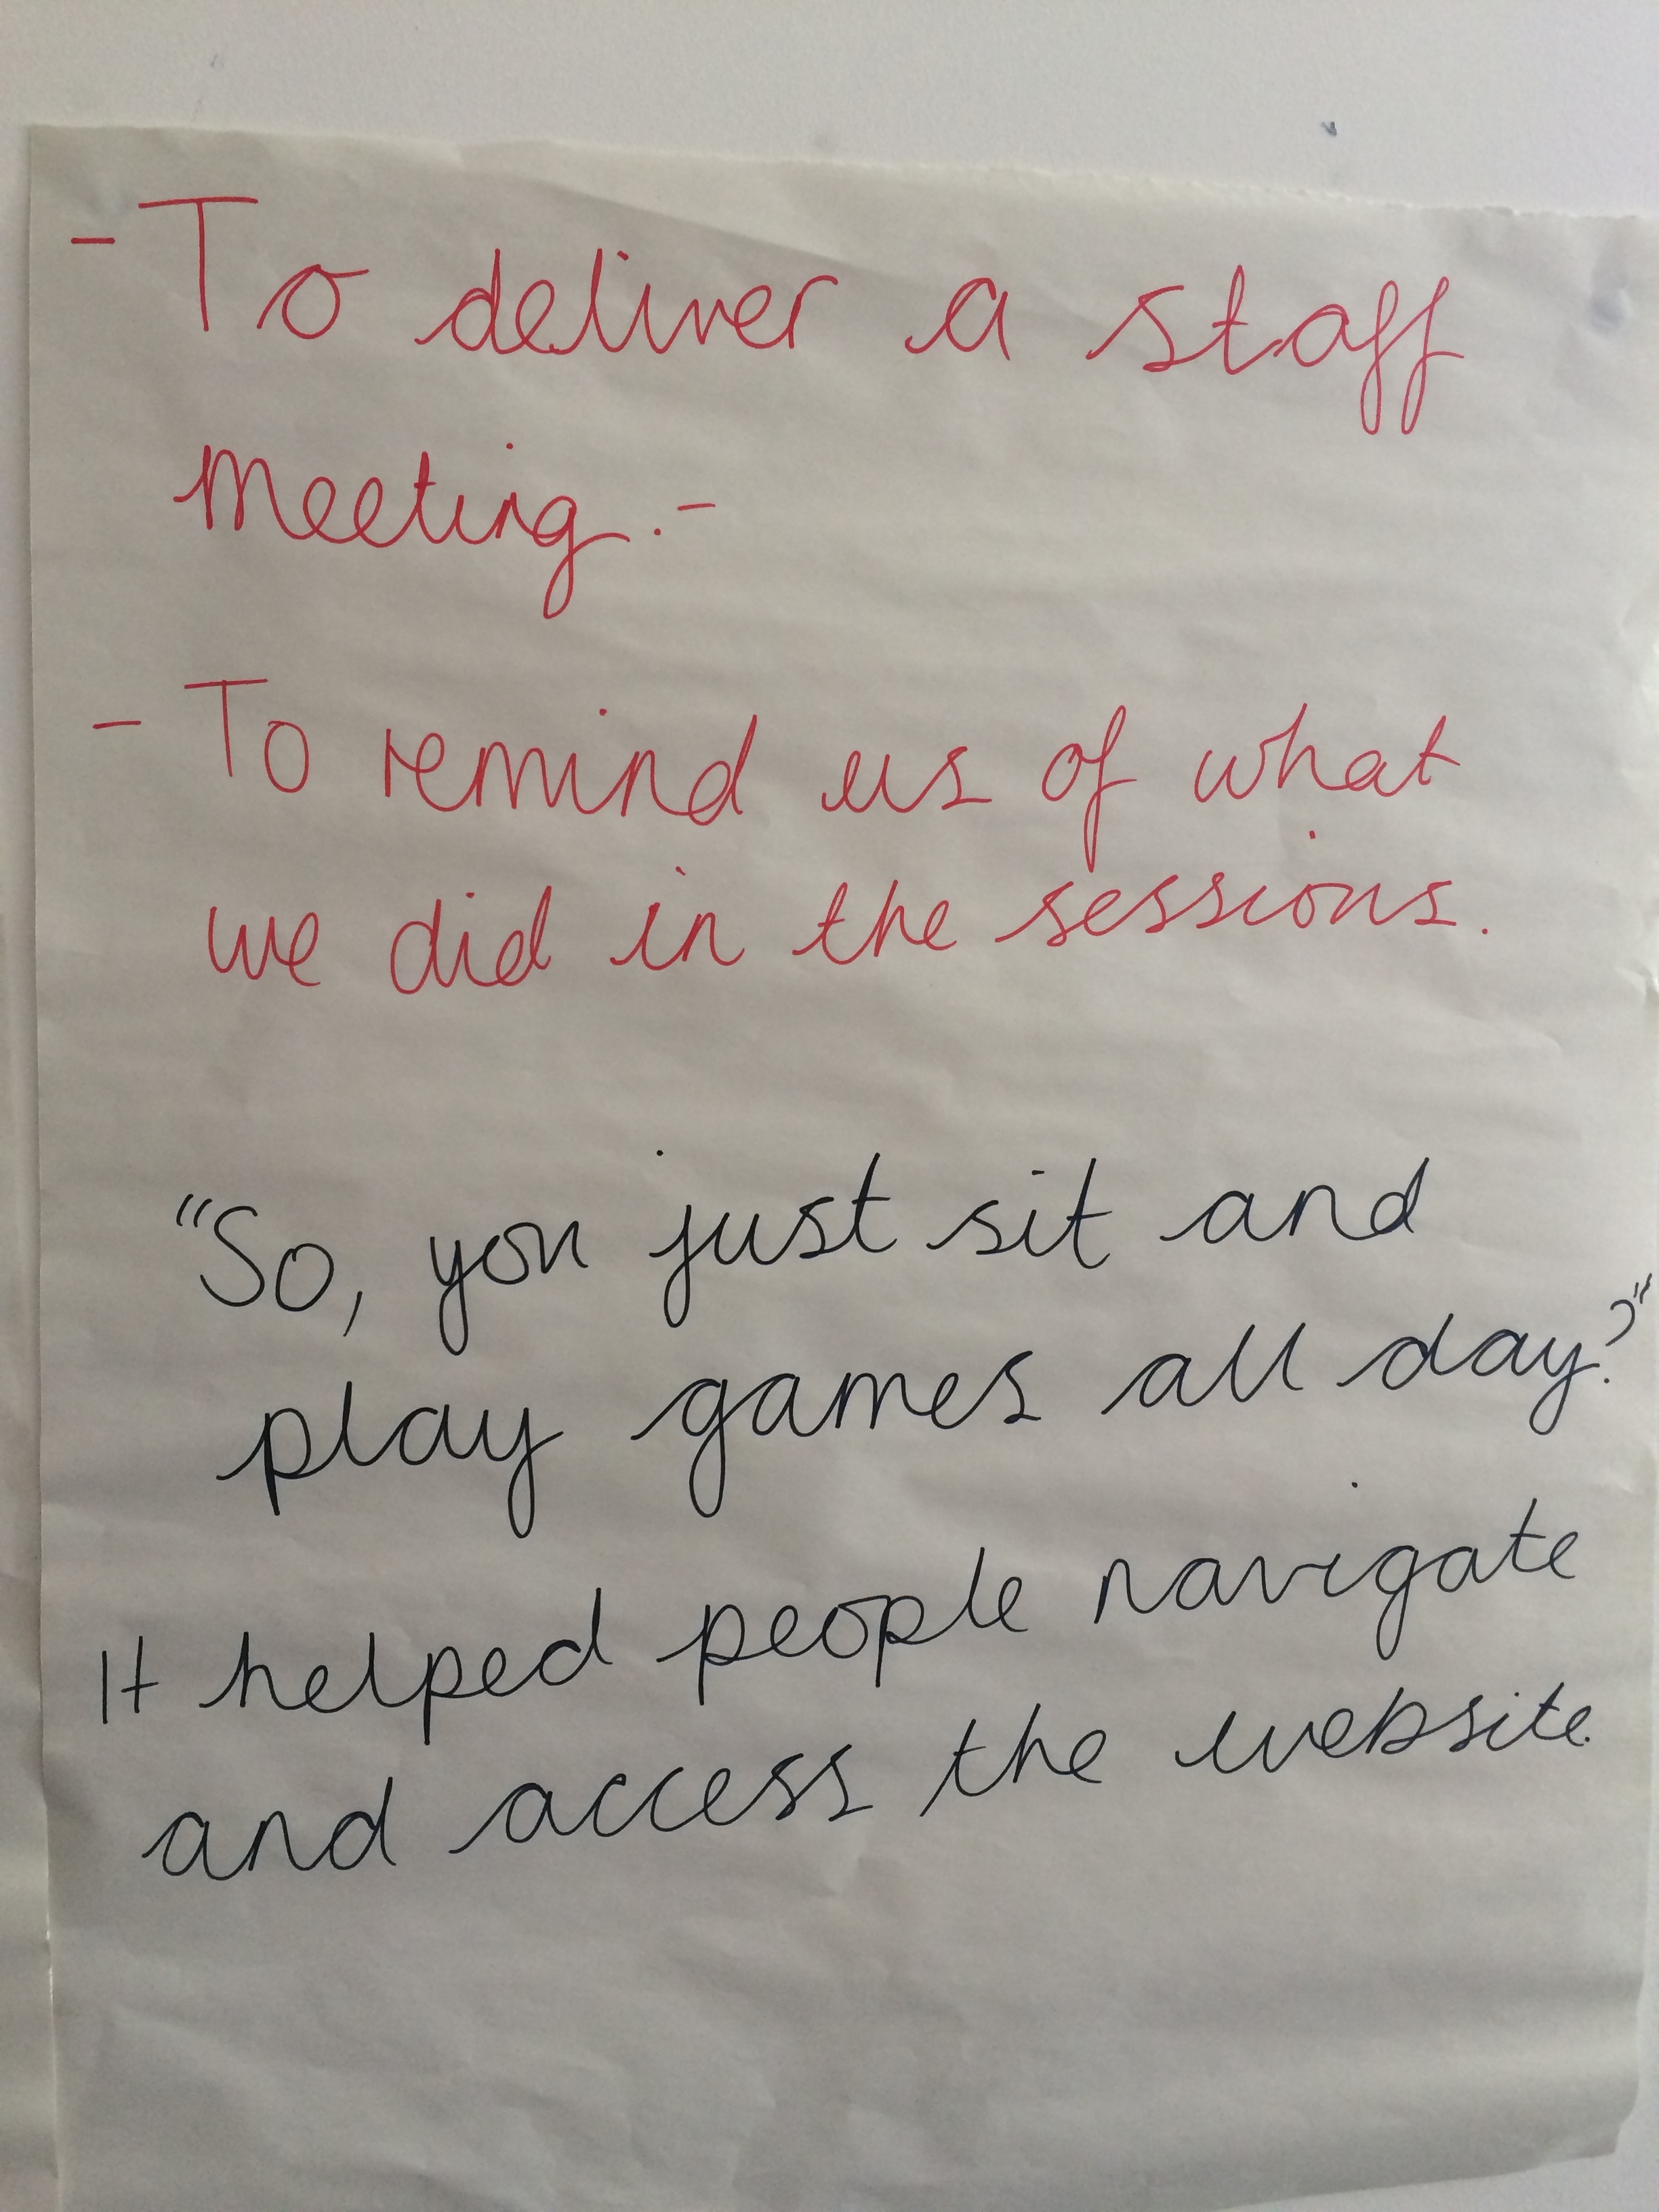 - To deliver a staff
meeting. -
- To remind us of what
we did in the sessions.
"So, you just sit and
play games all day?"
It helped people navigate
and access the website.